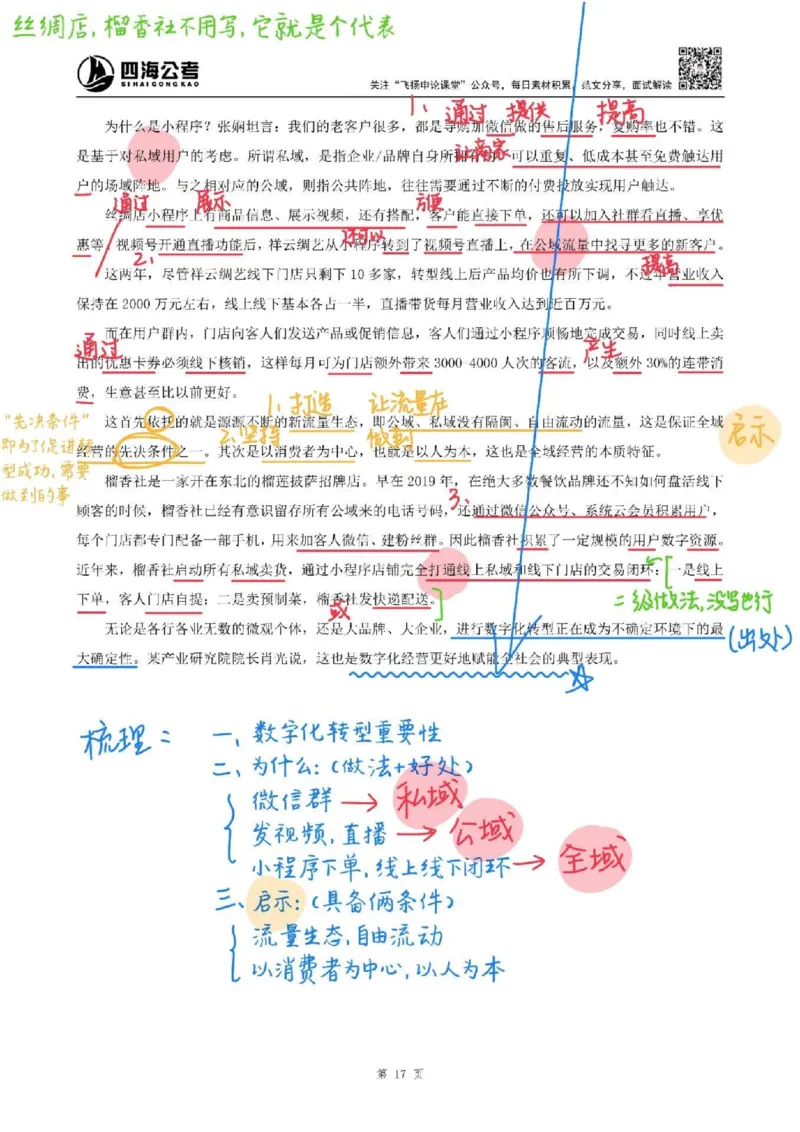 丝绸店,榴香社不用写,它就是个代表
四海公考
SIHAIGONGKAO
关注“飞扬申论课堂”公众号,每日素材积累、范文分享,面试解读
1、通过 提供 提高
为什么是小程序?张娴坦言:我们的老客户很多,都是导购加微信做的售后服务,复购率也不错。这
让商家
是基于对私域用户的考虑。所谓私域,是指企业/品牌自身所拥有的、可以重复、低成本甚至免费触达用
户的场域阵地。与之相对应的公域,则指公共阵地,往往需要通过不断的付费投放实现用户触达。
通过 展示 方便
丝绸店小程序上有商品信息、展示视频,还有搭配,客户能直接下单,还可以加入社群看直播、享优
还可以
惠等。视频号开通直播功能后,祥云绸艺从小程序转到了视频号直播上,在公域流量中找寻更多的新客户。
2、 提高
这两年,尽管祥云绸艺线下门店只剩下 10 多家,转型线上后产品均价也有所下调,不过年营业收入
保持在 2000 万元左右,线上线下基本各占一半,直播带货每月营业收入达到近百万元。
而在用户群内,门店向客人们发送产品或促销信息,客人们通过小程序顺畅地完成交易,同时线上卖
通过 产生
出的优惠卡券必须线下核销,这样每月可为门店额外带来 3000-4000 人次的客流,以及额外 30%的连带消
费,生意甚至比以前更好。
1、打造 让流量在
这首先依托的就是源源不断的新流量生态,即公域、私域没有隔阂、自由流动的流量,这是保证全域
2、坚持 做到
经营的先决条件之一。其次是以消费者为中心,也就是以人为本,这也是全域经营的本质特征。
启示
“先决条件”
即为了促进转
型成功,需要
做到的事
榴香社是一家开在东北的榴莲披萨招牌店。早在 2019 年,在绝大多数餐饮品牌还不知如何盘活线下
3、
顾客的时候,榴香社已经有意识留存所有公域来的电话号码,还通过微信公众号、系统云会员积累用户,
每个门店都专门配备一部手机,用来加客人微信、建粉丝群。因此榴香社积累了一定规模的用户数字资源。
近年来,榴香社启动所有私域卖货,通过小程序店铺完全打通线上私域和线下门店的交易闭环:一是线上
下单,客人门店自提;二是卖预制菜,榴香社发快递配送。
二级做法,没写也行
或
无论是各行各业无数的微观个体,还是大品牌、大企业,进行数字化转型正在成为不确定环境下的最
(出处)
大确定性。某产业研究院院长肖光说,这也是数字化经营更好地赋能全社会的典型表现。
梳理: 一、数字化转型重要性
二、为什么:(做法+好处)
微信群→私域
发视频,直播→公域
小程序下单,线上线下闭环→全域
三、启示:(具备俩条件)
流量生态,自由流动
以消费者为中心,以人为本
第 17 页